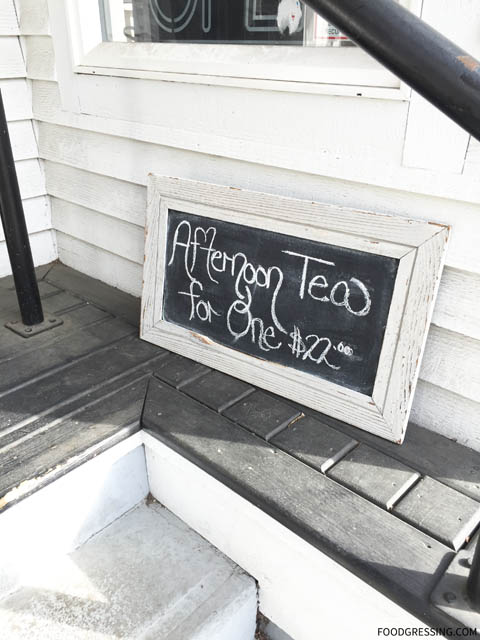 OPE
Afternoon Tea
for One $22.00
FOODGRESSING.COM